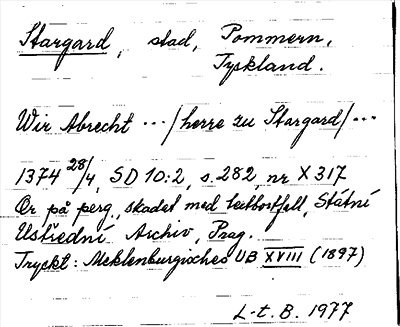 Stargard, stad, Pommern,
Tyskland.
Wir Abrecht ... / herre zu Stargard / ...
1374 28/4, SD 10:2, s. 282, nr X 317
Or på perg., skadet med textbortfall, Státní
Ustřední Archiv, Prag.
Tryckt: Meklenburgisches UB XVIII (1897)
L-t. B. 1977